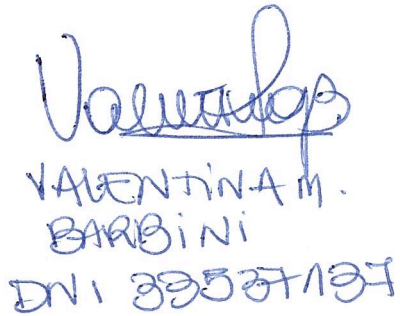 VALENTINA M.
BARBINI
DNI 33537137